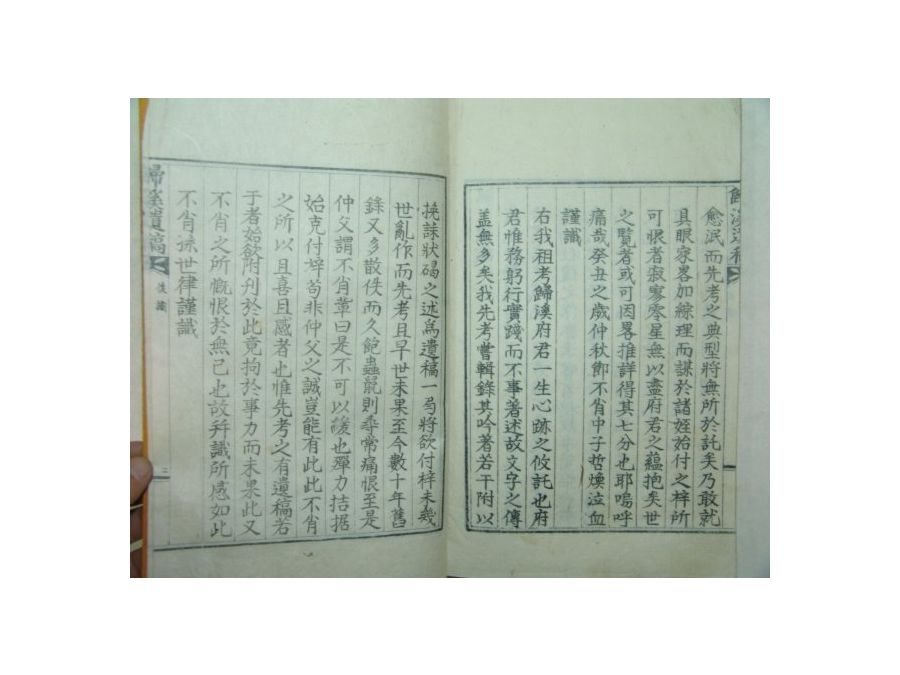 愈泯而先考之典型將無所於託矣乃敢就
具眼家畧加綜理而謀於諸姪始付之梓所
可恨者寂寥零星無以盡府君之蘊抱矣世
之覽者或可因畧推詳得其七分也耶嗚呼
痛哉癸丑之歲仲秋節不肖中子哲煥泣血
謹識
右我祖考歸溪府君一生心跡之攸託也府
君惟務躬行實踐而不事著述故文字之傳
盖無多矣我先考嘗輯錄其吟著若干附以
挽誄狀碣之述爲遺稿一局將欲付梓未幾
世亂作而先考且早世未果至今數十年舊
錄又多散佚而久飽蟲鼠則尋常痛恨至是
仲父謂不肖輩曰是不可以緩也殫力拮据
始克付梓苟非仲父之誠豈能有此此不肖
之所以且喜且感者也惟先考之有遺稿若
干者始欲附刊於此竟拘於事力而未果此又
不肖之所慨恨於無已也故幷識所感如此
不肖孫世律謹識
歸溪遺稿
後識
二